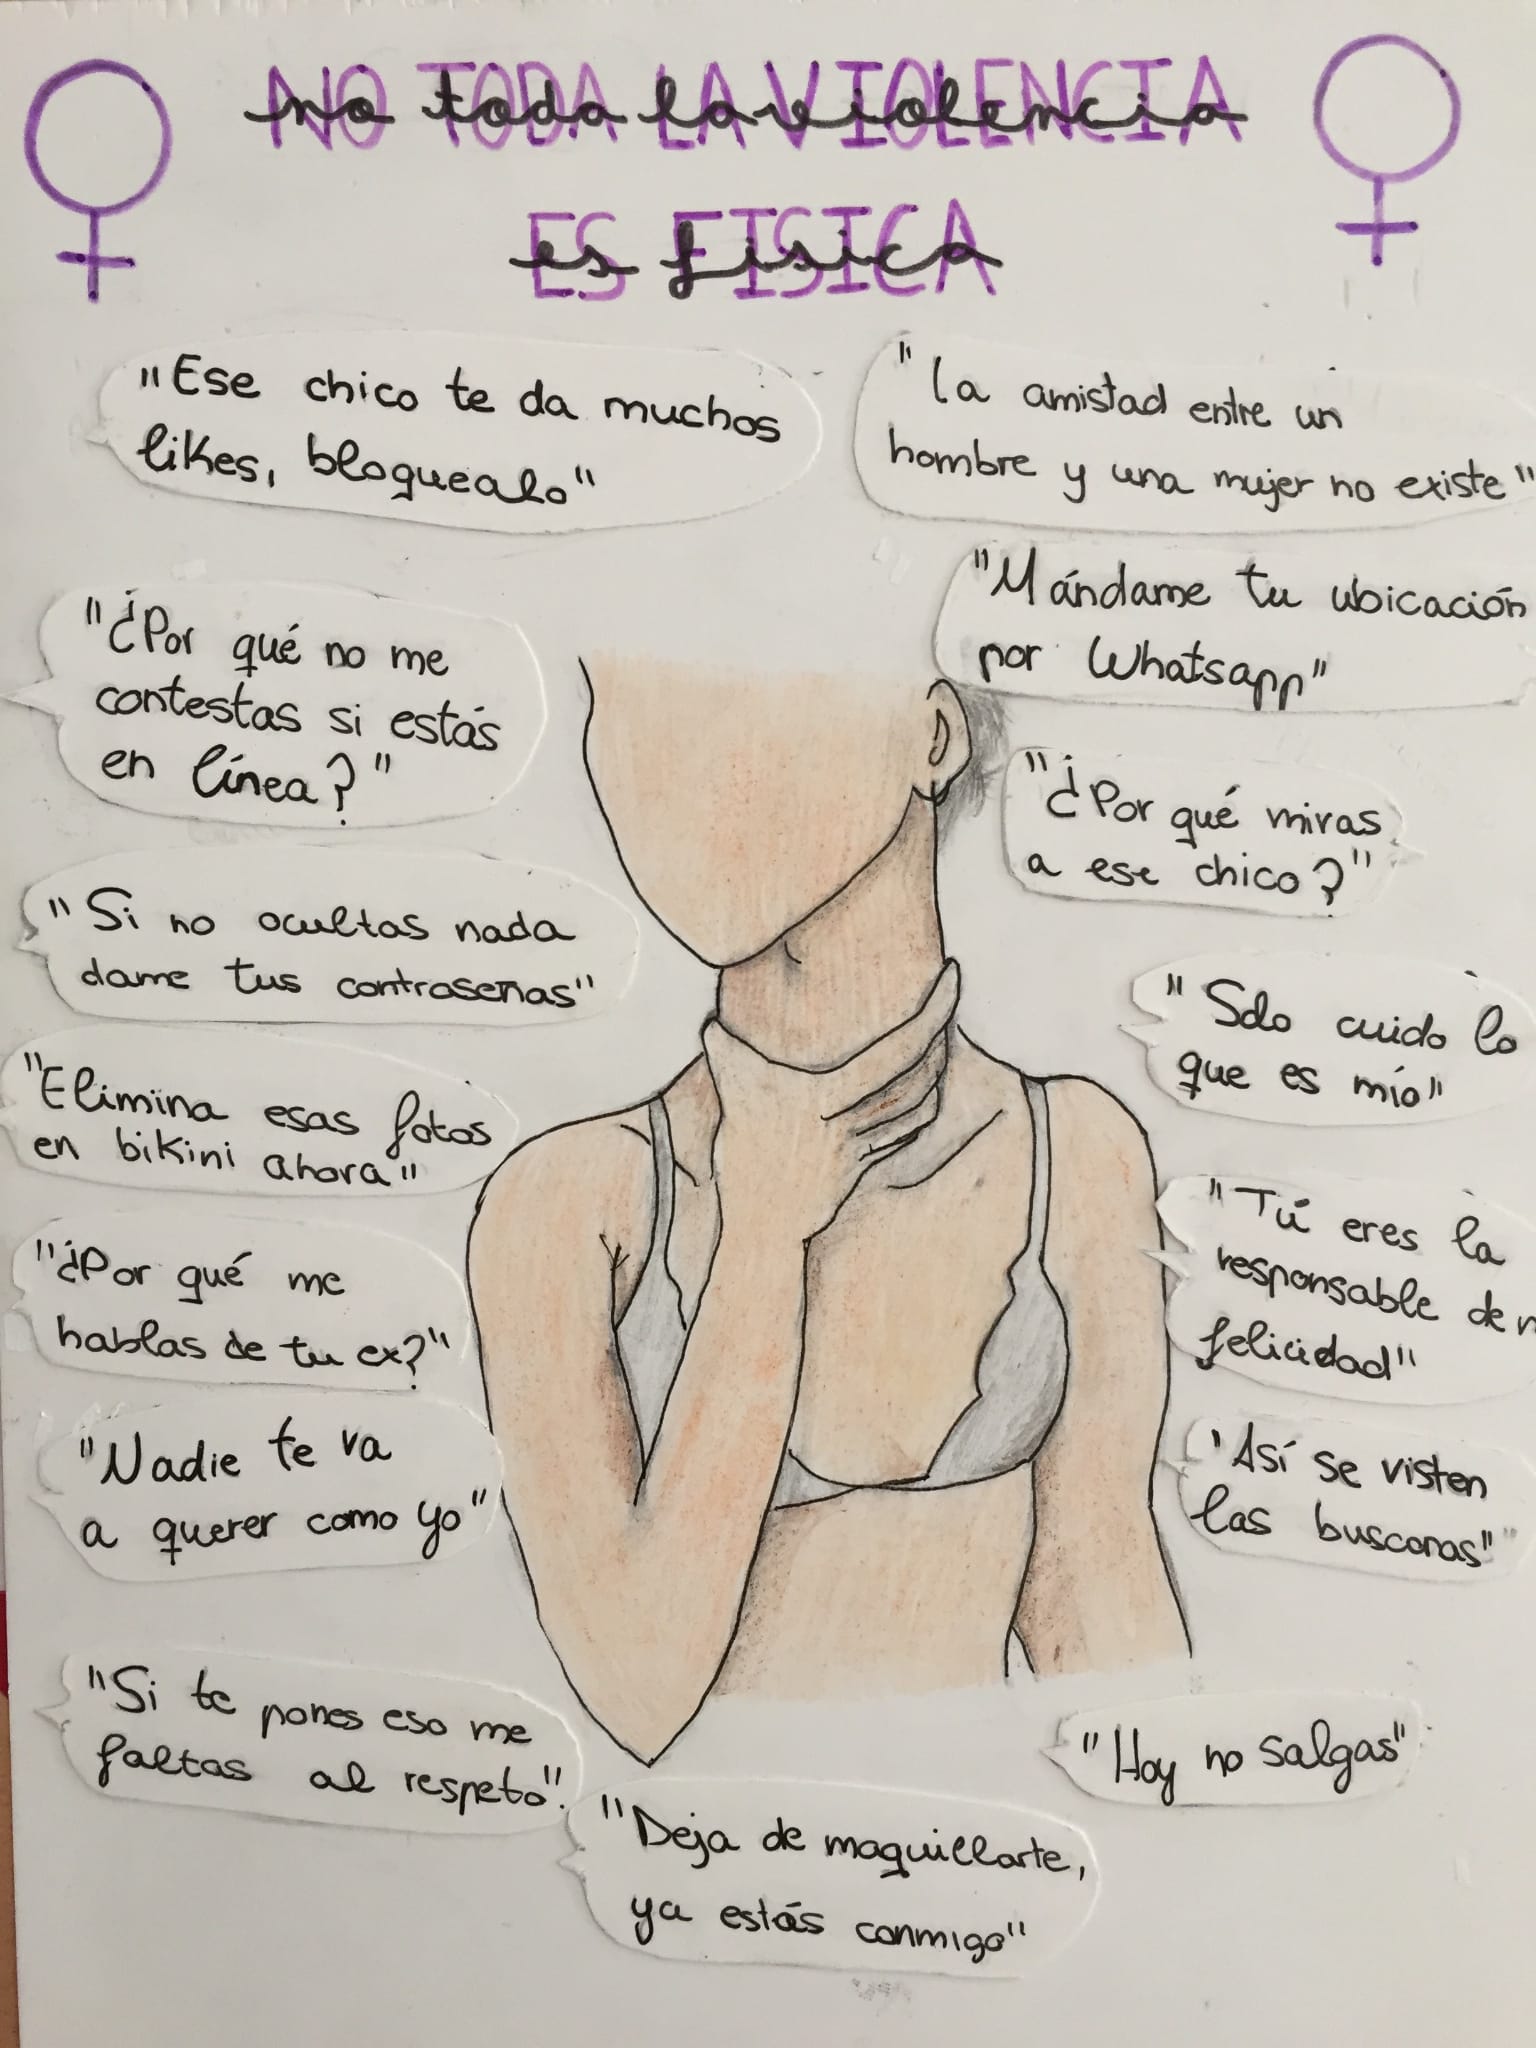 NO TODA LA VIOLENCIA
no toda la violencia
ES FISICA
es fisica
"Ese chico te da muchos
likes, bloquealo"
"la amistad entre un
hombre y una mujer no existe"
"¿Por qué no me
contestas si estás
en línea?"
"Mándame tu ubicación
por Whatsapp"
"¿Por qué miras
a ese chico?"
"Si no ocultas nada
dame tus contraseñas"
"Solo cuido lo
que es mío"
"Elimina esas fotos
en bikini ahora"
"Tú eres la
responsable de
felicidad"
"¿Por qué me
hablas de tu ex?"
"Nadie te va
a querer como yo"
'Así se visten
las busconas"
"Si te pones eso me
faltas al respeto".
"Hoy no salgas"
"Deja de maquillarte,
ya estás conmigo"